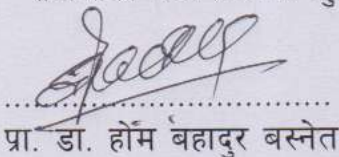 प्रा. डा. होम बहादुर बस्नेत